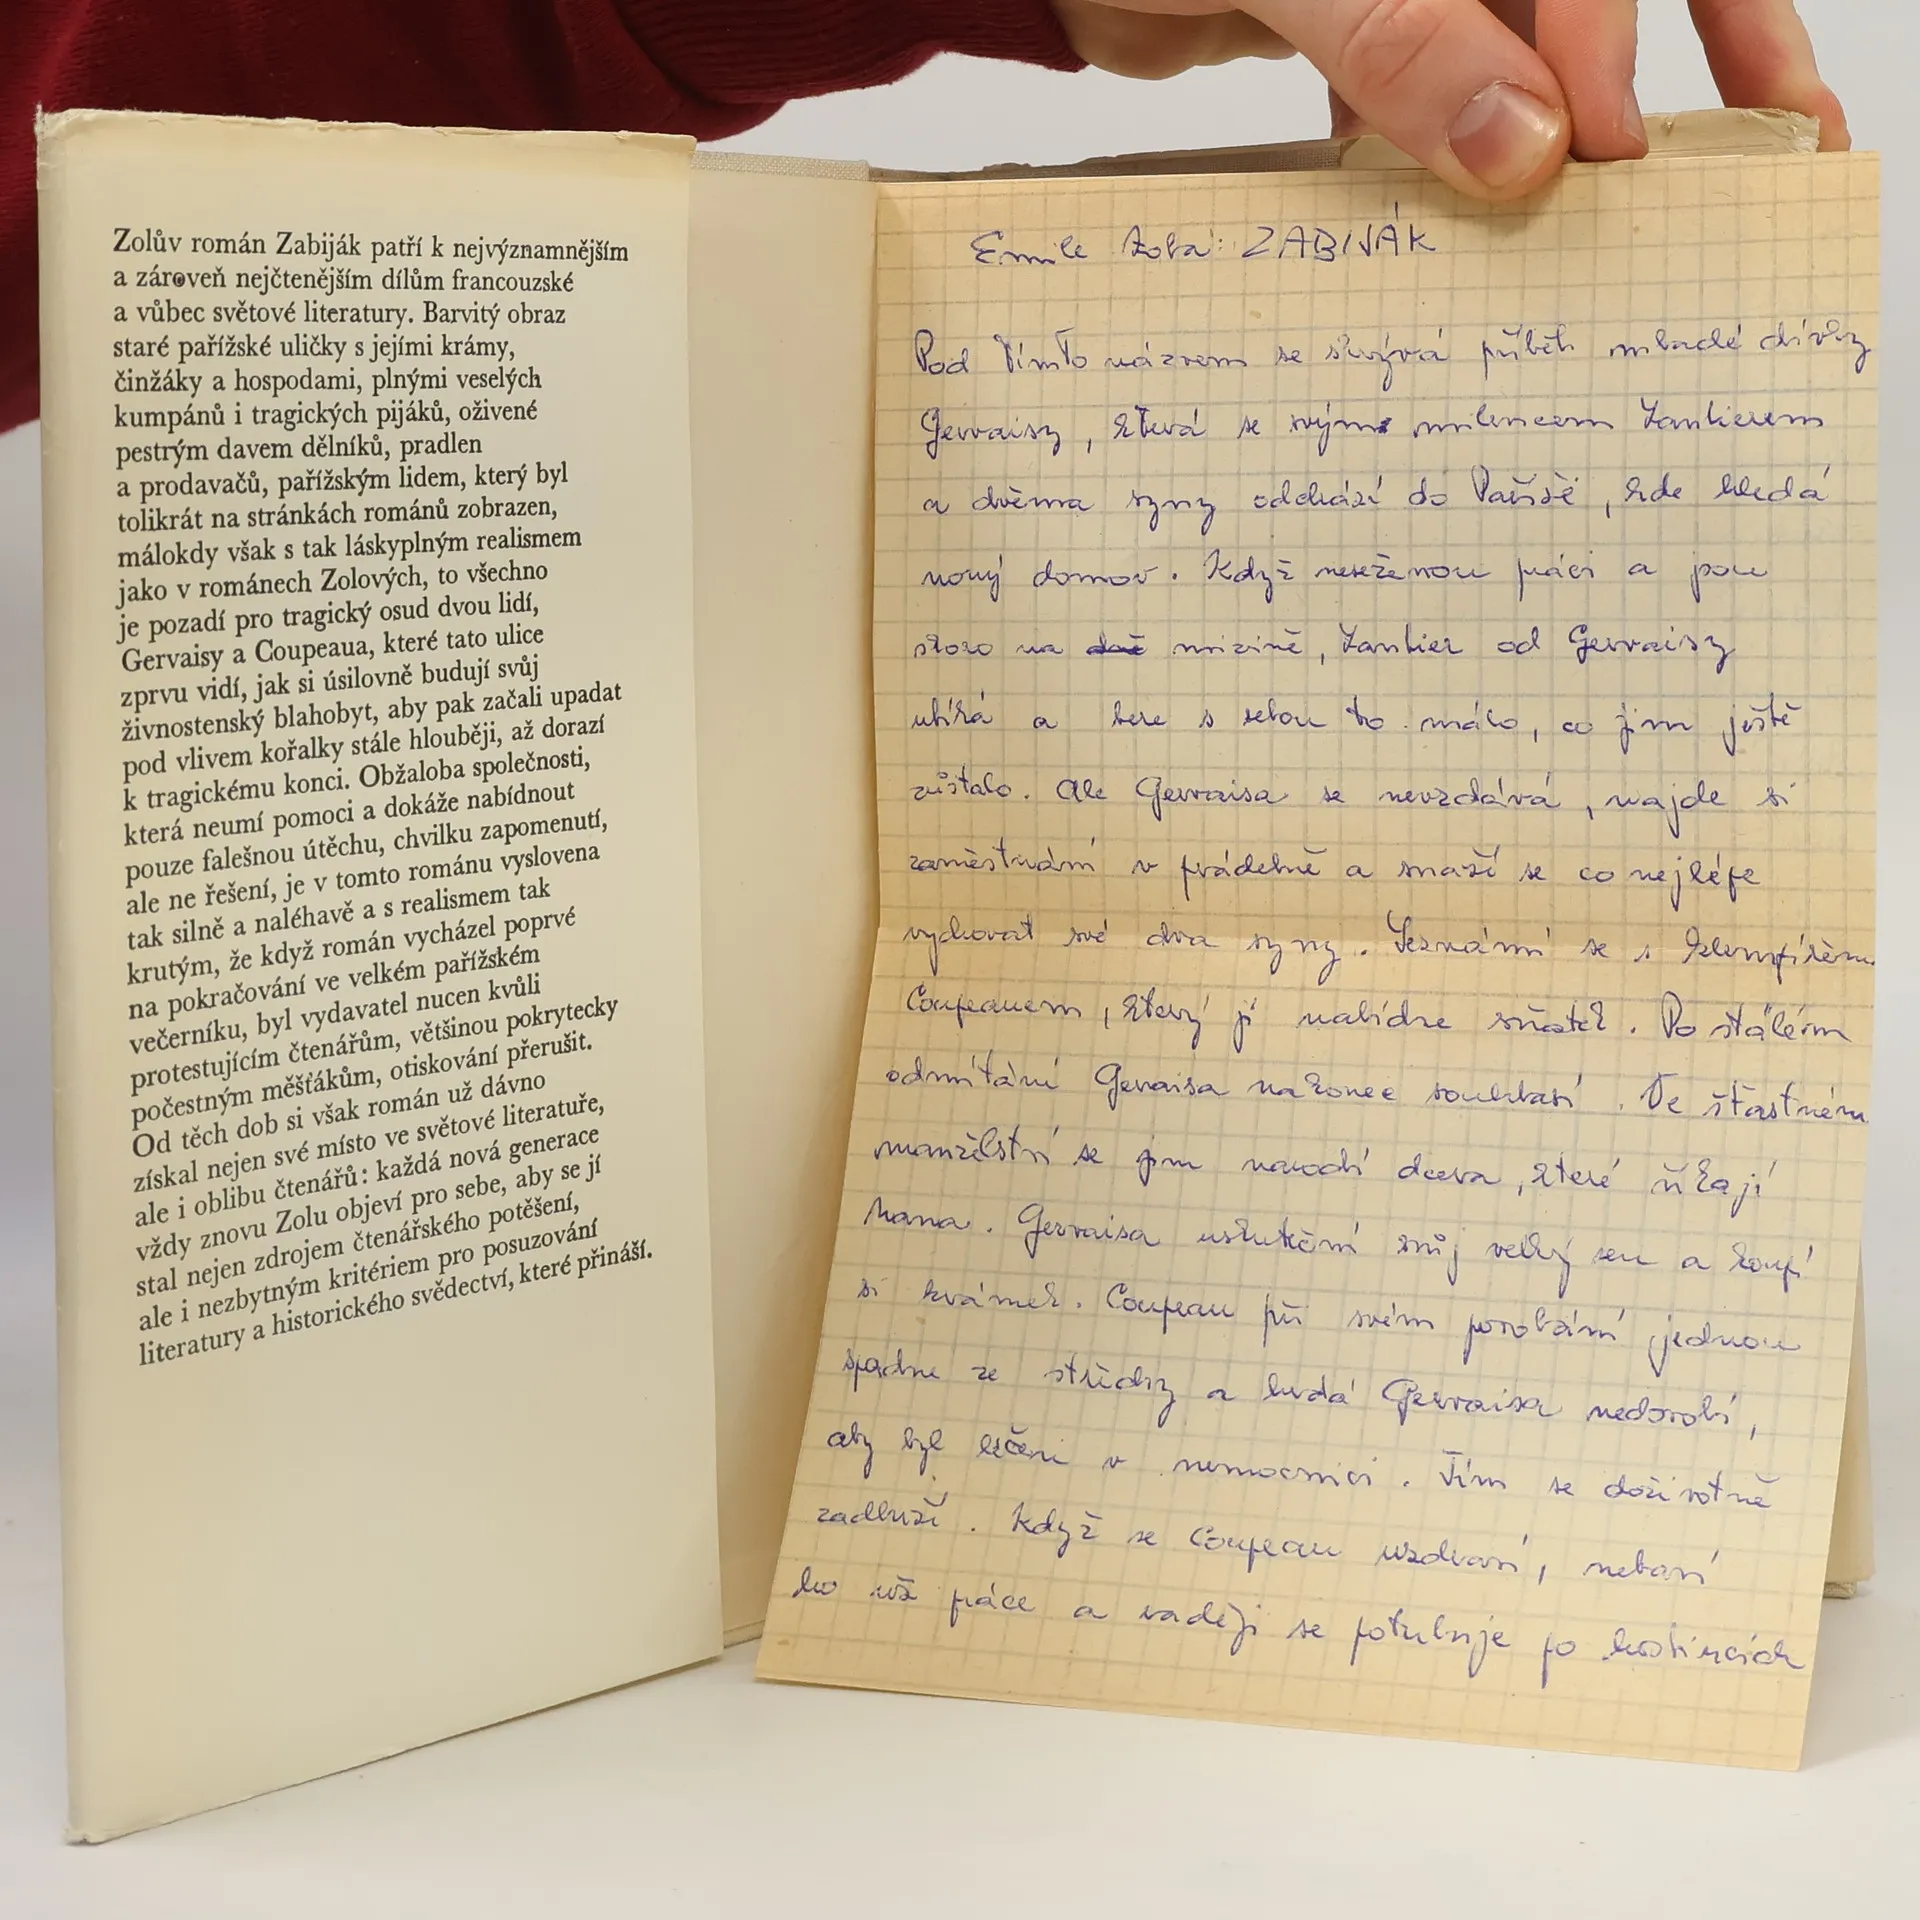 Zolův román Zabiják patří k nejvýznamnějším
a zároveň nejčtenějším dílům francouzské
a vůbec světové literatury. Barvitý obraz
staré pařížské uličky s jejími krámy,
činžáky a hospodami, plnými veselých
kumpánů i tragických pijáků, oživené
pestrým davem dělníků, pradlen
a prodavačů, pařížským lidem, který byl
tolikrát na stránkách románů zobrazen,
málokdy však s tak láskyplným realismem
jako v románech Zolových, to všechno
je pozadí pro tragický osud dvou lidí,
Gervaisy a Coupeaua, které tato ulice
zprvu vidí, jak si úsilovně budují svůj
živnostenský blahobyt, aby pak začali upadat
pod vlivem kořalky stále hlouběji, až dorazí
k tragickému konci. Obžaloba společnosti,
která neumí pomoci a dokáže nabídnout
pouze falešnou útěchu, chvilku zapomenutí,
ale ne řešení, je v tomto románu vyslovena
tak silně a naléhavě a s realismem tak
krutým, že když román vycházel poprvé
na pokračování ve velkém pařížském
večerníku, byl vydavatel nucen kvůli
protestujícím čtenářům, většinou pokrytecky
počestným měšťákům, otiskování přerušit.
Od těch dob si však román už dávno
získal nejen své místo ve světové literatuře,
ale i oblibu čtenářů: každá nová generace
vždy znovu Zolu objeví pro sebe, aby se jí
stal nejen zdrojem čtenářského potěšení,
ale i nezbytným kritériem pro posuzování
literatury a historického svědectví, které přináší.
Emile Zola: ZABIJÁK
Pod tímto názvem se skrývá příběh mladé dívky
Gervaisy, která se svým milencem Lantierem
a dvěma syny odchází do Paříže, kde hledá
nový domov. Když neseženou práci a jsou
skoro na mizině, Lantier od Gervaisy
utíká a bere s sebou to málo, co jim ještě
zůstalo. Ale Gervaisa se nevzdává, najde si
zaměstnání v prádelně a snaží se co nejlépe
vychovat své dva syny. Seznámí se s klempířem
Coupeauem, který jí nabídne sňatek. Po stálém
odmítání Gervaisa nakonec souhlasí. Ve šťastném
manželství se jim narodí dcera, které říkají
Nana. Gervaisa uskuteční svůj velký sen a koupí
si krámek. Coupeau při svém povolání jednou
spadne ze střechy a hrdá Gervaisa nedovolí,
aby byl léčen v nemocnici. Tím se doživotně
zadluží. Když se Coupeau uzdraví, nebaví
ho už práce a raději se potuluje po hostincích